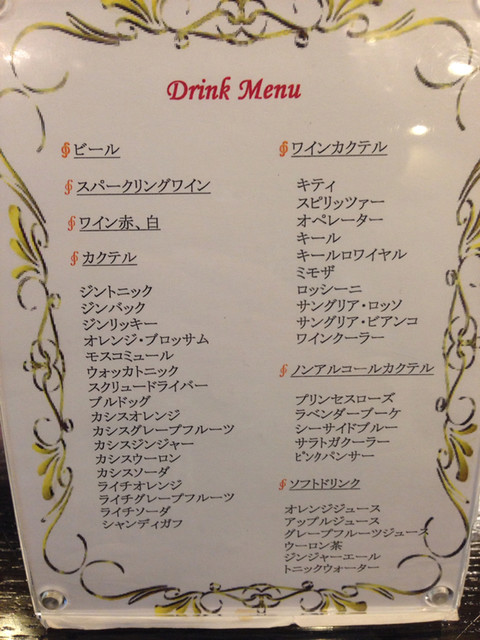 Drink Menu
ビール
スパークリングワイン
ワイン赤、白
カクテル
ジントニック
ジンバック
ジンリッキー
オレンジ・ブロッサム
モスコミュール
ウォッカトニック
スクリュードライバー
ブルドッグ
カシスオレンジ
カシスグレープフルーツ
カシスジンジャー
カシスウーロン
カシスソーダ
ライチオレンジ
ライチグレープフルーツ
ライチソーダ
シャンディガフ
ワインカクテル
キティ
スピリッツァー
オペレーター
キール
キールロワイヤル
ミモザ
ロッシーニ
サングリア・ロッソ
サングリア・ビアンコ
ワインクーラー
ノンアルコールカクテル
プリンセスローズ
ラベンダーブーケ
シーサイドブルー
サラトガクーラー
ピンクパンサー
ソフトドリンク
オレンジジュース
アップルジュース
グレープフルーツジュース
ウーロン茶
ジンジャーエール
トニックウォーター